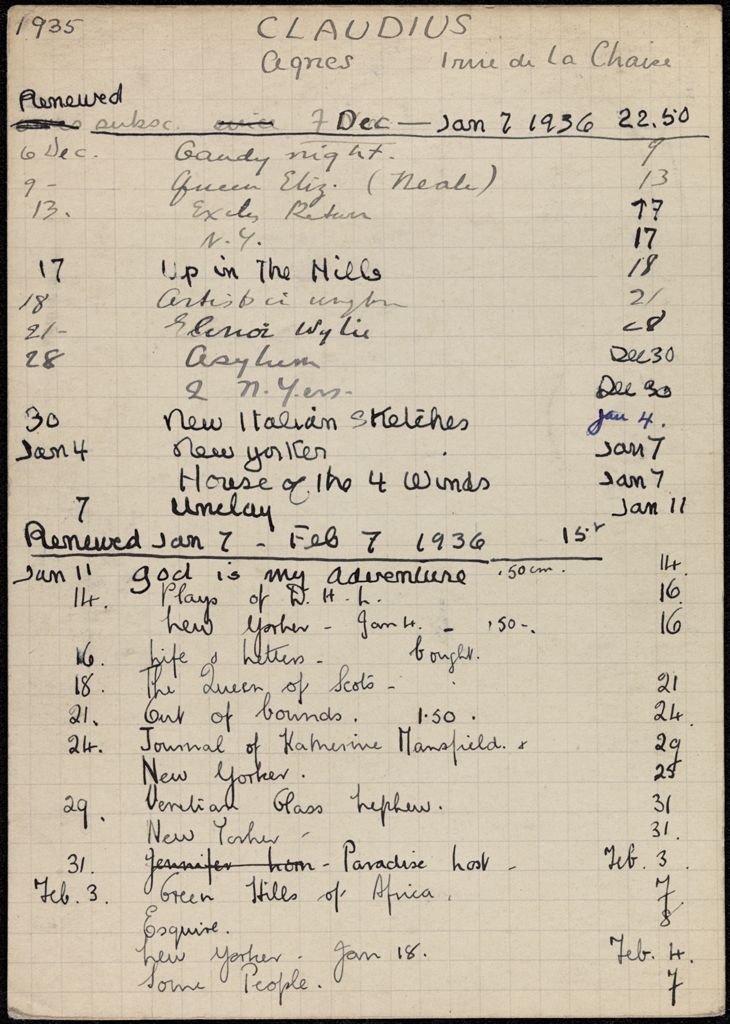 1935 CLAUDIUS
Agnes 1 rue de La Chaise
Renewed
subsc. 7 Dec — Jan 7 1936 22.50
6 Dec. Gaudy night. 9
9 - Queen Eliz. (Neale) 13
13. Exiles Return 17
N.Y. 17
17 Up in The Hills 18
18 Artist 21
21 - Elinor Wylie 28
28 Asylum Dec 30
2 N.Yers. Dec 30
30 New Italian Sketches Jan 4.
Jan 4 New yorker Jan 7
House of the 4 Winds Jan 7
7 Unclay Jan 11
Renewed Jan 7 - Feb 7 1936 15.
Jan 11 God is my adventure .50 cm. 14.
14. Plays of D. H. L. 16.
New Yorker - Jan 4. - .50 -. 16
16. Life & Letters - bought.
18. The Queen of Scots - 21
21. Out of bounds. 1.50. 24
24. Journal of Katherine Mansfield. 29
New Yorker. 25
29. Venetian Glass Nephew. 31
New Yorker - 31.
31. Jennifer Lorn - Paradise Lost - Feb. 3
Feb. 3. Green Hills of Africa. 7
Esquire. 8
New Yorker. Jan 18. Feb. 4.
Some People. 7